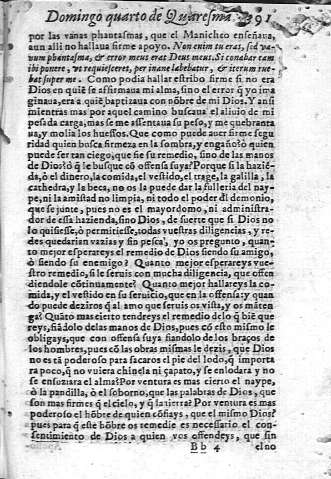 Domingo quarto de Quaresma. 391
por las vanas phantasmas, que el Manicheo enseñaua,
aun alli no hallaua firme apoyo. Non enim tu eras, sed va-
num phantasma, & error meus erat Deus meus. Si conabar eam
ibi ponere, vt requiesceret, per inane labebatur, & iterum rue-
bat super me. Como podia hallar estribo firme si no era
Dios en quiē se affirmaua mi alma, sino el error q̃ yo ima
ginaua, era a quiē baptizaua con nōbre de mi Dios. Y ansi
mientras mas por aquel camino buscaua el aliuio de mi
pesada carga, mas se me assentaua su peso, y me quebranta
ua, y molia los huessos. Que como puede auer firme segu
ridad quien busca firmeza en la sombra, y engaño? ò quien
puede ser tan ciego, que fie su remedio, sino de las manos
de Dios? ò q̃ le busque cō offensa suya? Porque si la haziē-
da, ò el dinero, la comida, el vestido, el trage, la galilla, la
cathedra, y la beca, no os la puede dar la fulleria del nay-
pe, ni la amistad no limpia, ni todo el poder dl demonio,
que se junte, pues no es el mayordomo, ni administra-
dor de essa hazienda, sino Dios, de suerte que si Dios no
lo quisiesse, ò permitiesse, todas vuestras diligencias, y re-
des quedarian vazias y sin pesca, yo os pregunto, quan-
to mejor esperareys el remedio de Dios siendo su amigo,
ò siendo su enemigo? Quanto mejor esperareys vue-
stro remedio, si le seruis con mucha diligencia, que offen
diendole cōtinuamente? Quanto mejor hallareys la co-
mida, y el vestido en su seruicio, que en la offensa: y quan-
do puede deziros q̃ al amo que seruis os vista, y os māten-
ga? Quāto mas cierto tendreys el remedio de lo q̃ biē que
reys, fiādolo de las manos de Dios, pues cō esto mismo le
obligays, que con offensa suya fiandolo de los braços de
los hombres, pues cō las obras mismas le dezis, que Dios
no es tā poderoso para sacaros el pie del lodo, q̃ importa
ra poco, q̃ no vuiera chinela ni çapato, y se enlodara y no
se ensuziara el alma? Por ventura es mas cierto el naype,
ò la pandilla, ò el soborno, que las palabras de Dios, que
son mas firmes q̃ el cielo, y q̃ la tierra? Por ventura es mas
poderoso el hōbre de quien cōfiays, que el mismo Dios?
pues para q̃ este hōbre os remedie es necessario el con-
sentimiento de Dios a quien vos offendeys, que sin
Bb 4 el no